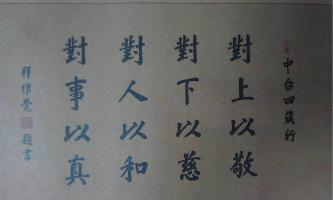 中台四箴行
對上以敬
對下以慈
對人以和
對事以真
釋惟覺
題書